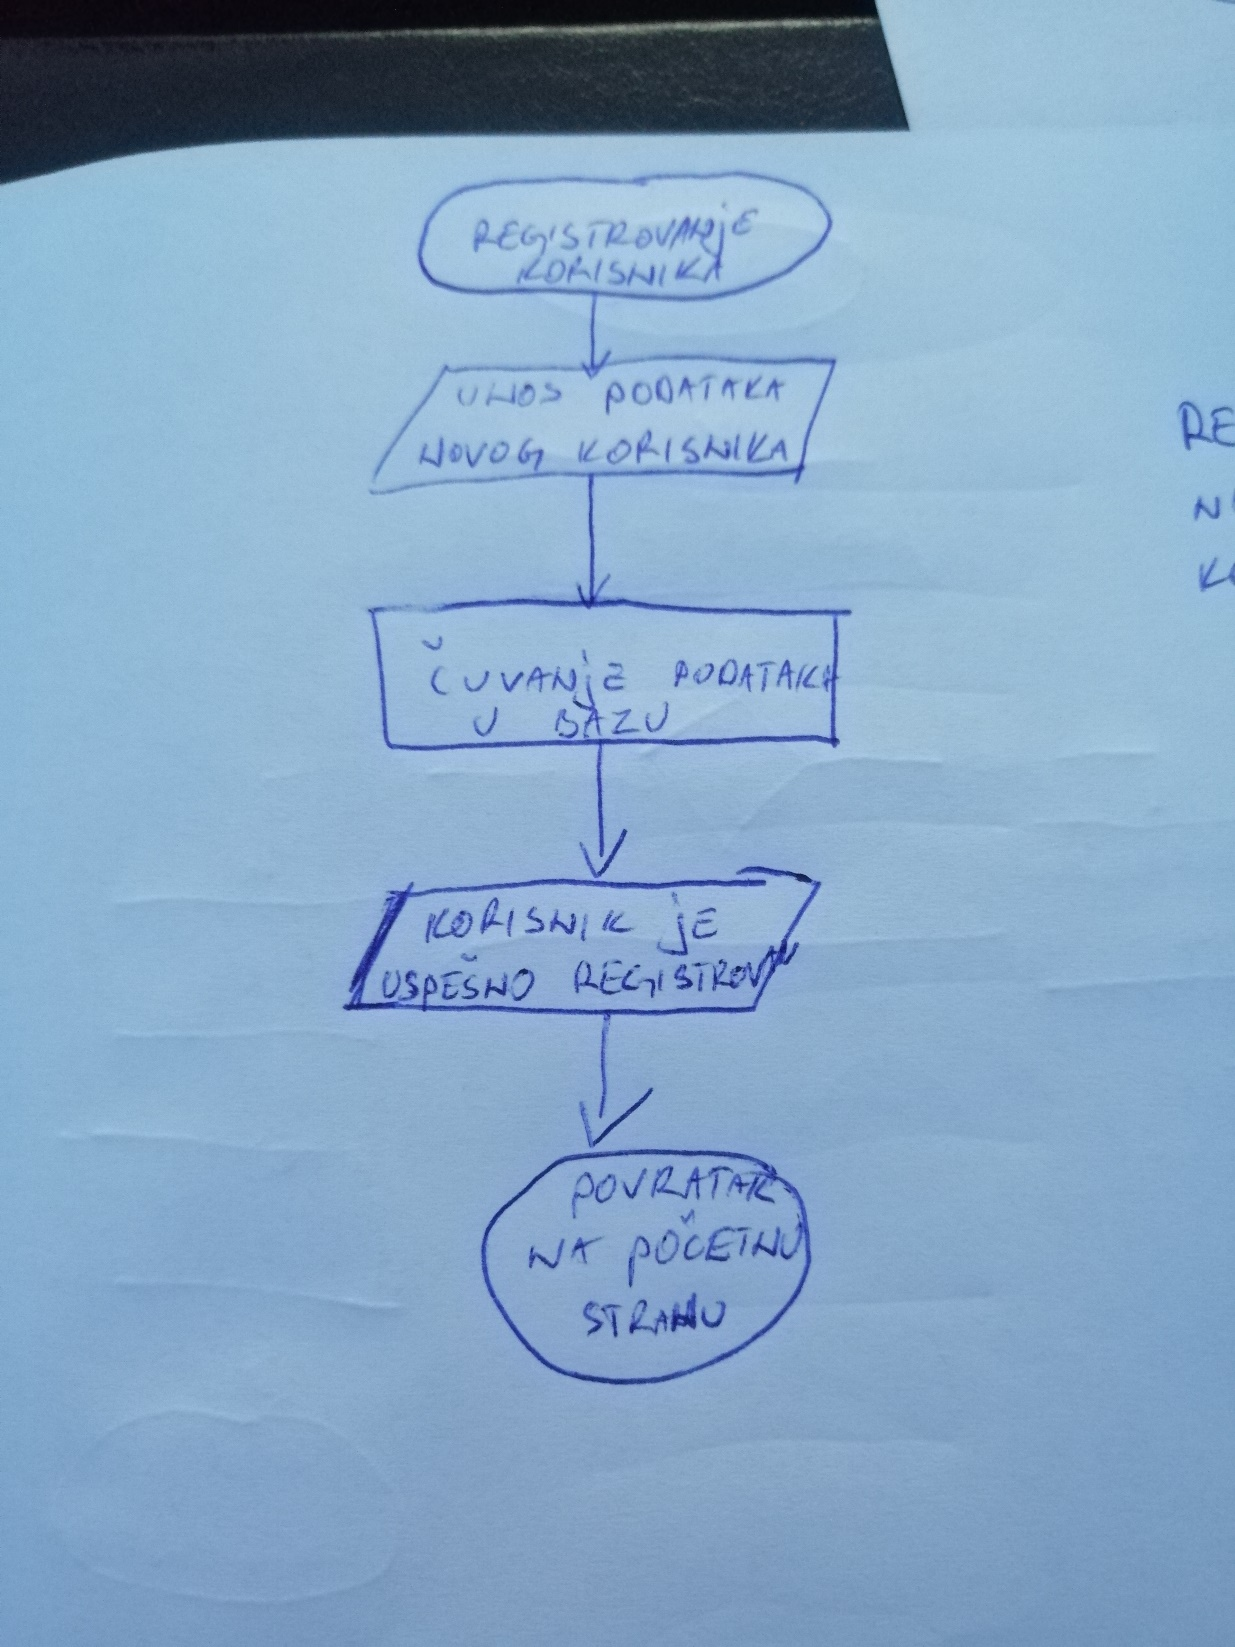 REGISTROVANjE
KORISNIKA
UNOS PODATAKA
NOVOG KORISNIKA
ČUVANjE PODATAKA
U BAZU
KORISNIK jE
USPEŠNO REGISTROVAN
POVRATAK
NA POČETNU
STRANU